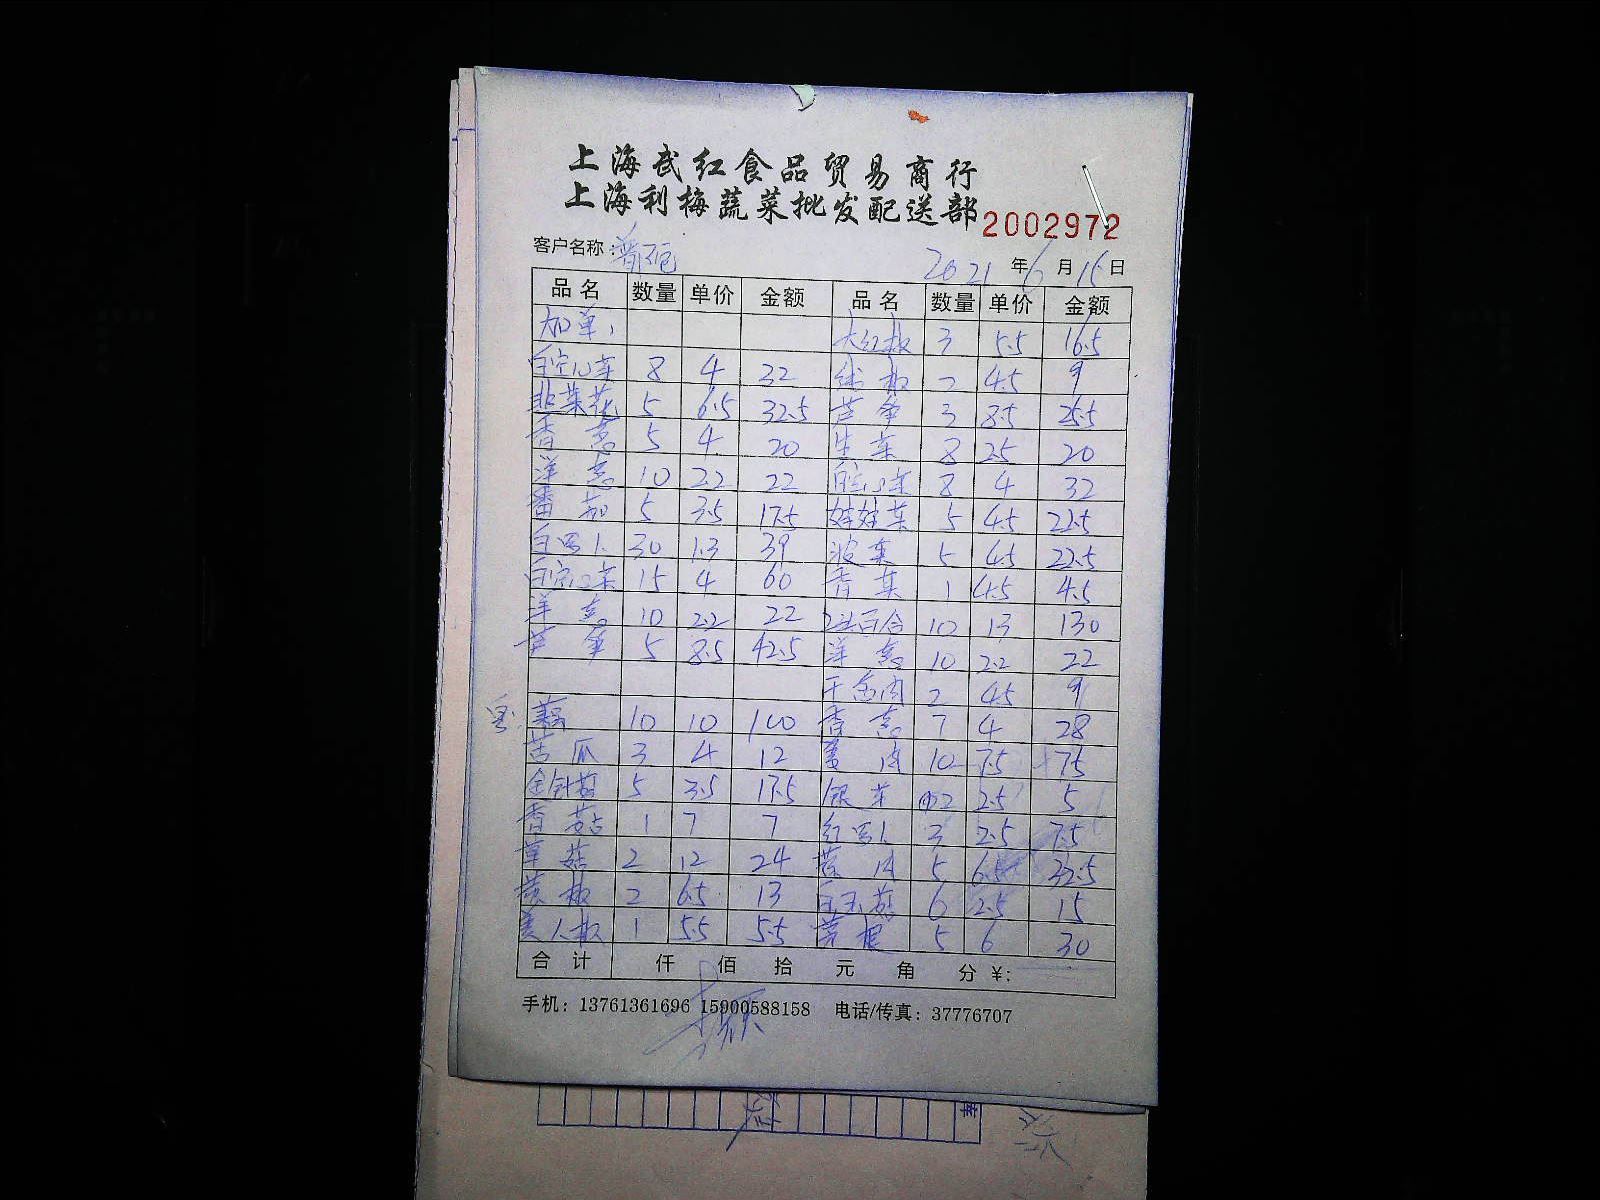 上海武红食品贸易商行
上海利梅蔬菜批发配送部 2002972
客户名称: 2021年6月15日
品名 数量 单价 金额 品名 数量 单价 金额
加单: 大红椒 3 5.5 16.5
白空心菜 8 4 32 线椒 2 4.5 9
韭菜花 5 6.5 32.5 芦笋 3 8.5 25.5
香葱 5 4 20 生菜 8 2.5 20
洋葱 10 2.2 22 白空心菜 8 4 32
番茄 5 3.5 17.5 娃娃菜 5 4.5 22.5
白罗卜 30 1.3 39 波菜 5 4.5 22.5
白空心菜 15 4 60 香菜 1 4.5 4.5
洋葱 10 2.2 22 百合 10 13 130
芦笋 5 8.5 42.5 洋葱 10 2.2 22
2 4.5 9
藕 10 10 100 香葱 7 4 28
苦瓜 3 4 12 姜肉 10 7.5 75
金针菇 5 3.5 17.5 银芽 2 2.5 5
香菇 1 7 7 红罗卜 3 2.5 7.5
草菇 2 12 24 5 6.5 32.5
黄椒 2 6.5 13 白玉菇 6 2.5 15
美人椒 1 5.5 5.5 5 6 30
合计 仟 佰 拾 元 角 分 ¥:
手机: 13761361696 15900588158 电话/传真: 37776707